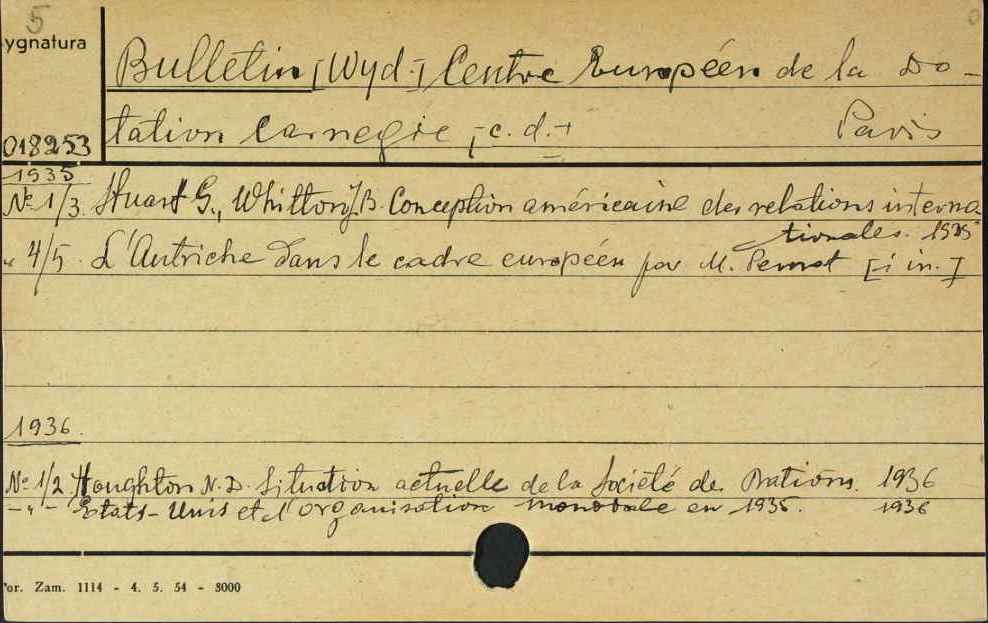 5
ygnatura
Bulletin [Wyd.] Centre Européen de la Do-
tation Carnegie, c.d. Paris
018253
1935
№ 1/3 Stuart G., Whitton J.B. Conception américaine des relations interna
tionales. 1935
„ 4/5. L'Autriche dans le cadre européen par M. Pernot [i in.]
1936.
№ 1/2 Houghton N.D. Situation actuelle de la Société des Nations. 1936
-„- Etats-Unis et l'organisation mondiale en 1935. 1936
or. Zam. 1114 - 4. 5. 54 - 8000